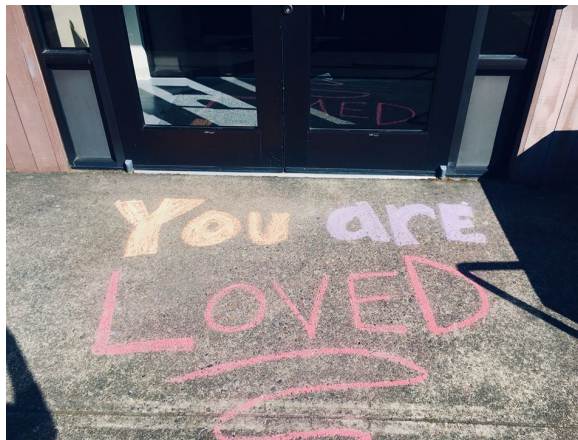 You are
LOVED